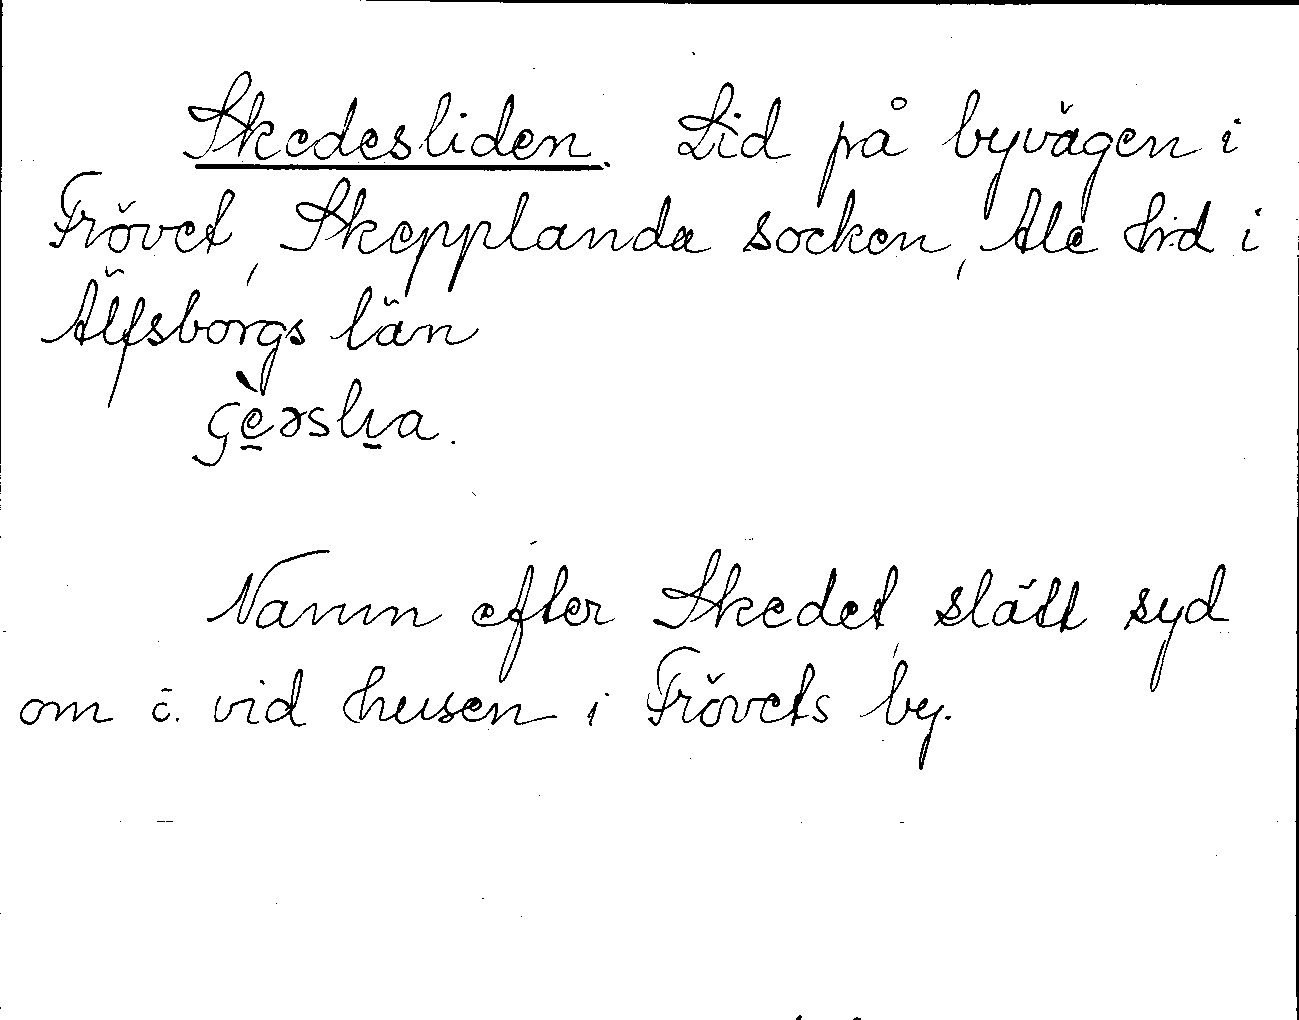 Skedesliden. Lid på byvägen i
Frövet, Skepplanda socken, Ale hrd i
Älfsborgs län
Namn efter Skedet, slätt syd
om o. vid husen i Frövets by.